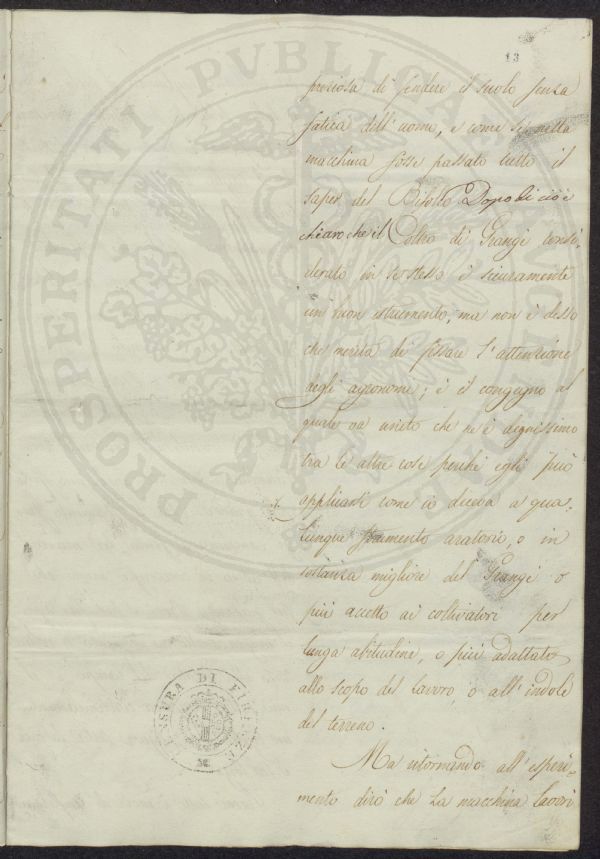 13
preziosa di fendere il suolo senza
fatica dell'uomo, e come se nella
macchina fosse passato tutto il
saper del Bifolco Dopo di ciò è
chiaro che il Coltro di Grangé consi-
derato in se stesso è sicuramente
un buon istrumento, ma non è desso
che merita di fissare l'attenzione
degli agronomi; è il congegno al
quale va unito che ne è degnissimo
tra le altre cose perchè egli può
applicarsi come io diceva a qua-
lunque strumento aratorio, o in
sostanza migliore del Grangé o
più accetto ai coltivatori per
lunga abitudine, o più adattato
allo scopo del lavoro, o all'indole
del terreno.
Ma ritornando all'esperi-
mento dirò che la macchina lavorò
PROSPERITATI PVBLICAE
CENSURA DI FIRENZE